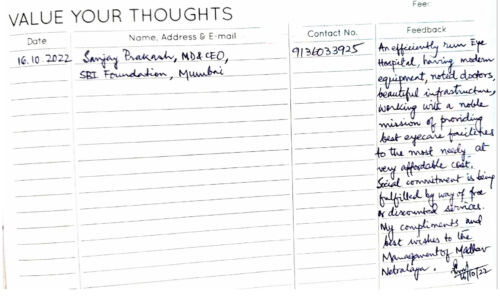 Feed
VALUE YOUR THOUGHTS
Date
Name, Address & E-mail
Contact No.
Feedback
16.10.2022
Sanjay Prakash, MD & CEO,
SBI Foundation, Mumbai
9136033925
An efficiently run Eye
Hospital, having modern
equipment, noted doctors,
beautiful infrastructure,
working with a noble
mission of providing
best eyecare facilities
to the most needy at
very affordable cost.
Social commitment is being
fulfilled by way of free
or discounted services.
My compliments and
best wishes to the
Management of Madhav
Netralaya.
16/10/22